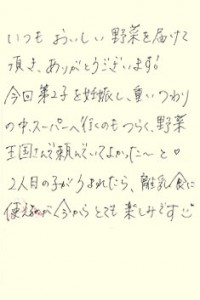 いつも おいしい 野菜を届けて
頂き、ありがとうございます!
今回第2子を妊娠し、重いつわり
の中、スーパーへ行くのもつらく、野菜
王国さんで頼んでいてよかった〜と♡
2人目の子がうまれたら、離乳食に
使えるのが今からとても楽しみです